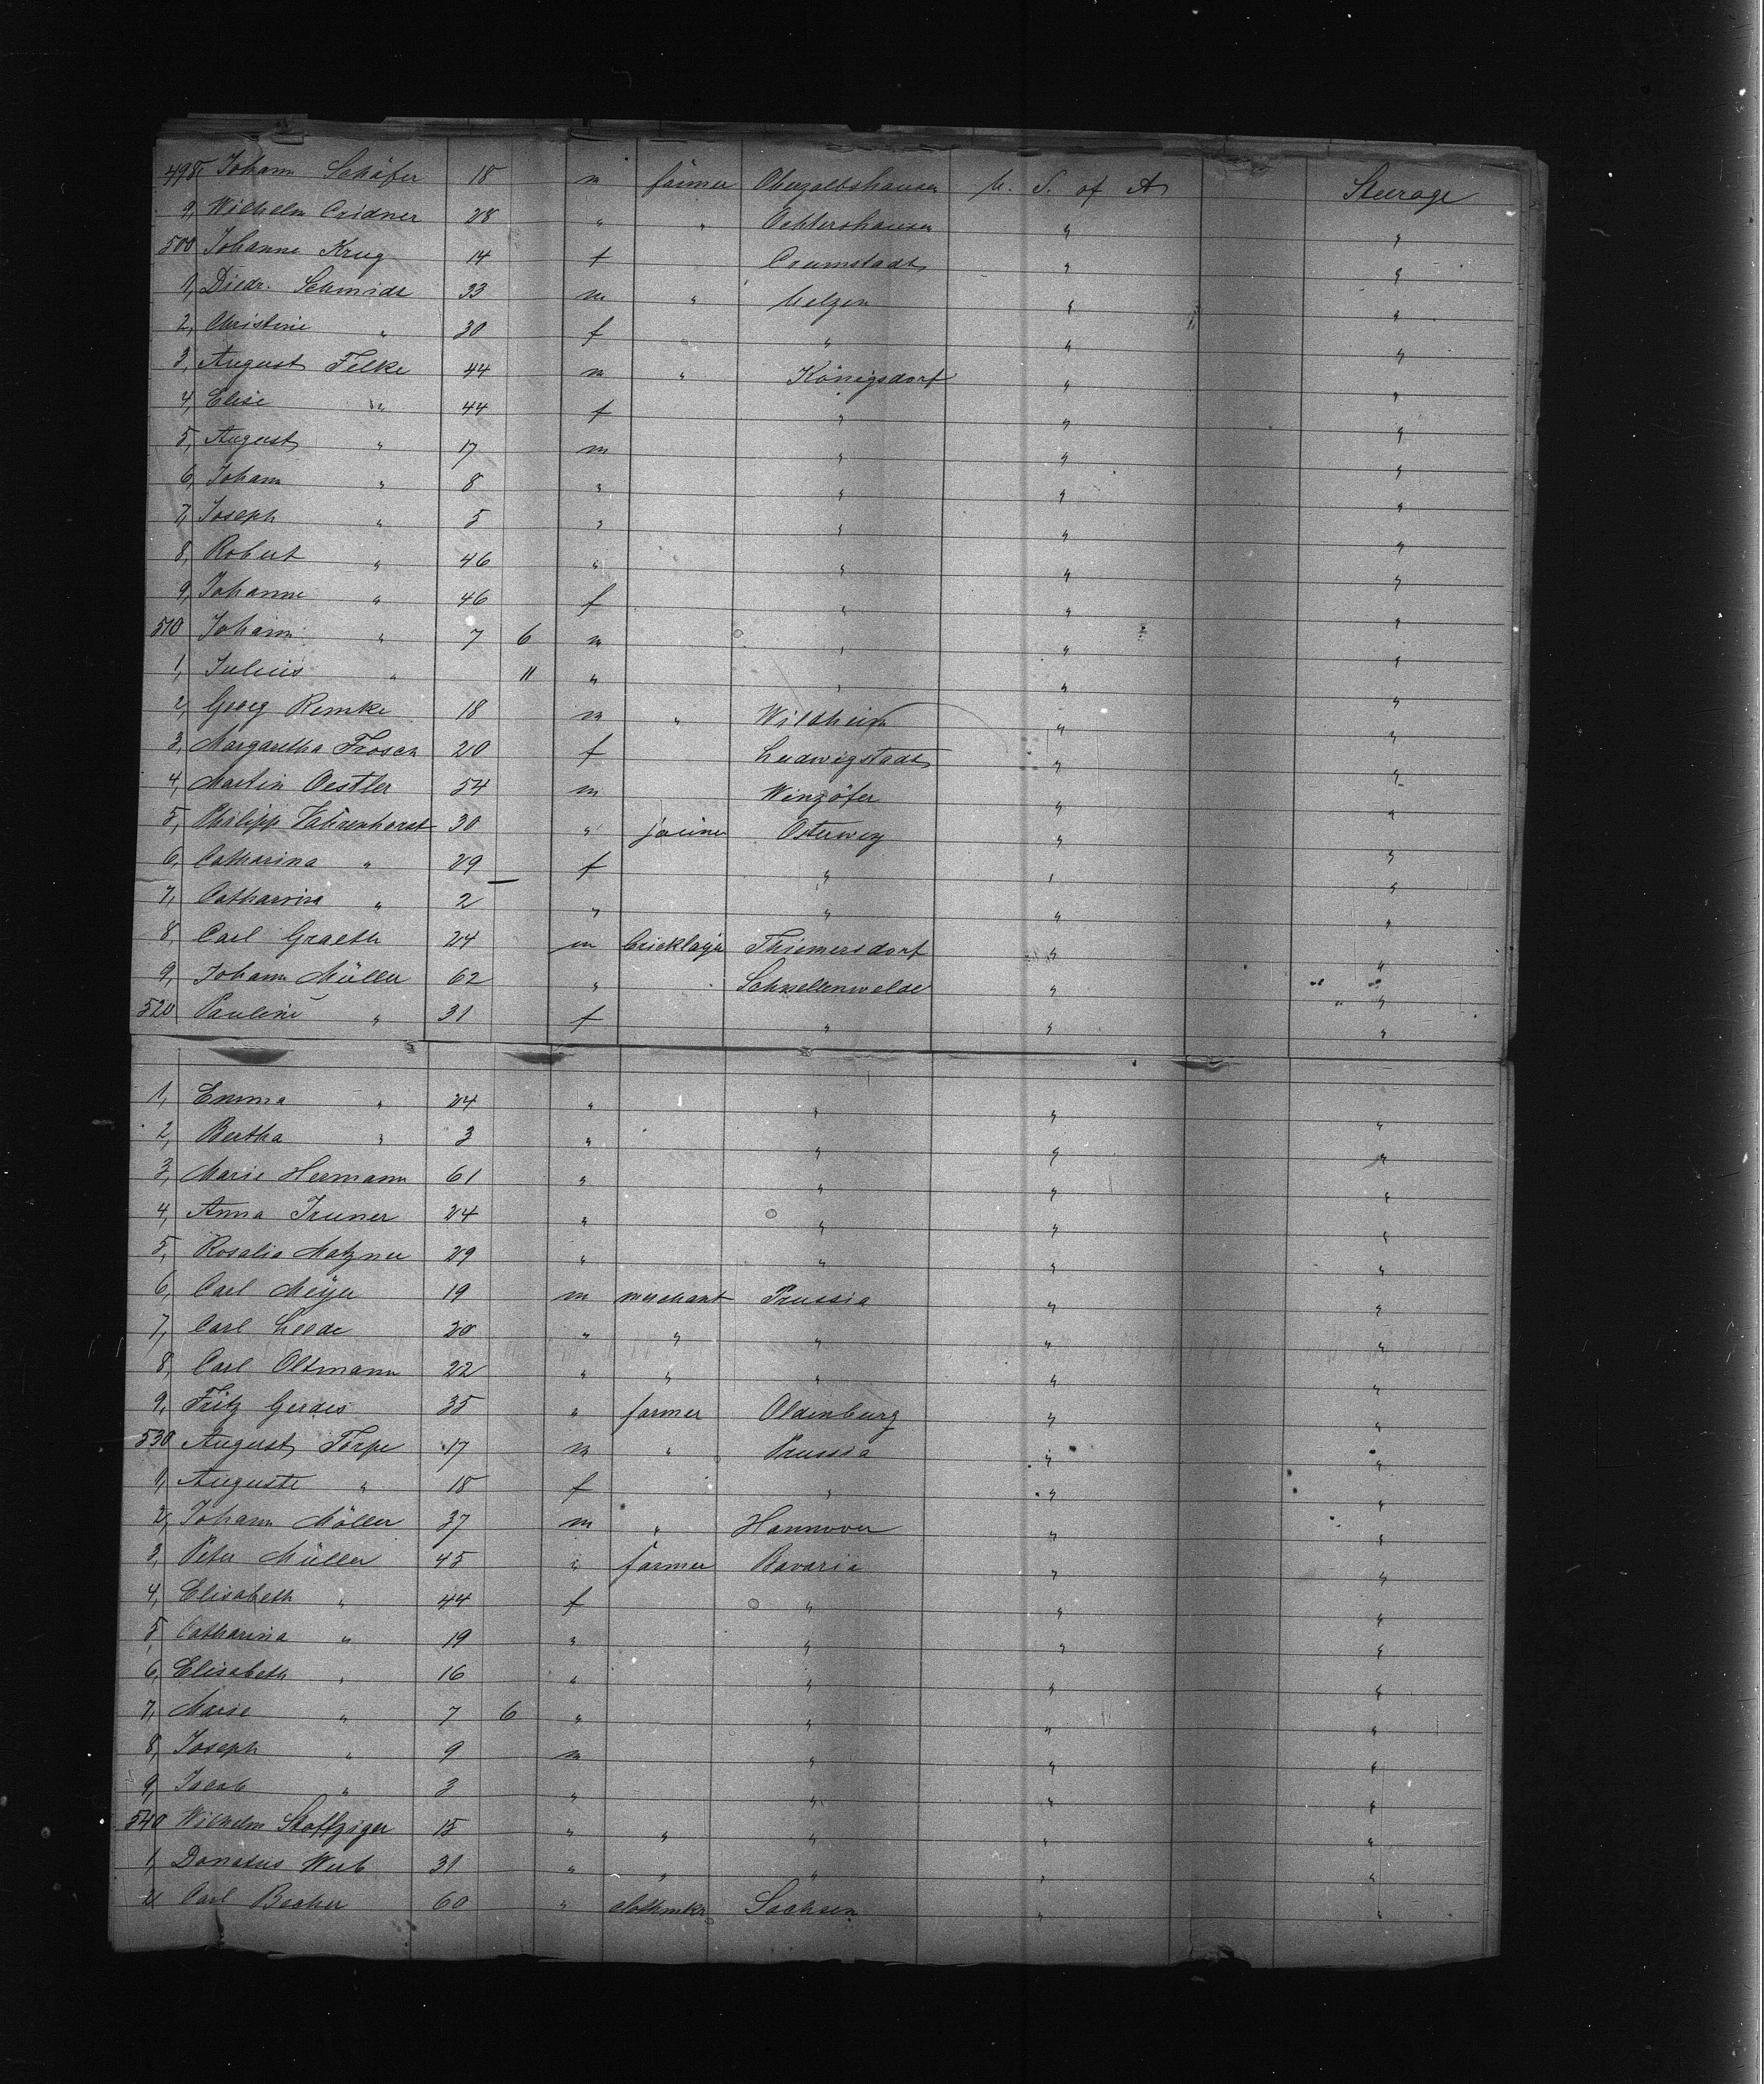 498, Johann Schäfer 18 m farmer Oberzalbshausen U. S. of A Steerage
9, Wilhelm Cridner 28 " " Oehtershausen " "
500 Johanne Krug 14 f Crumstadt " "
1, Diedr. Schmidt 33 m " Uelzen " "
2, Christine " 30 f " " "
3, August Felke 44 m " Königsdorf " "
4, Elise " 44 f " " "
5, August " 17 m " " "
6, Johann " 8 " " " "
7, Joseph " 5 " " " "
8, Robert " 46 " " " "
9, Johanne " 46 f " " "
510 Johann " 7 6 m " " "
1, Julius " 11 " " " "
2, Georg Remke 18 m " Wildheim " "
3, Margaretha Frosch 20 f Ludwigstadt " "
4, Martin Oestler 54 m Winzöfer " "
5, Philipp Vahrenhorst 30 " joiner Osterweg " "
6, Catharina " 29 f " " "
7, Catharina " 2 " " " "
8, Carl Graeth 24 m bricklayer Thiemersdorf " "
9, Johann Müller 62 " Schnellenwelde " "
520 Pauline " 31 f " " "
1, Emma " 24 " " " "
2, Bertha " 3 " " " "
3, Marie Hermann 61 " " " "
4, Anna Iruner 24 " " " "
5, Rosalia Matzner 29 " " " "
6, Carl Meyer 19 m merchant Prussia " "
7, Carl Leede 20 " " " " "
8, Carl Oltmann 22 " " " " "
9, Fritz Gerdes 35 " farmer Oldenburg " "
530 August Törpe 17 m " Prussia " "
1, Auguste " 18 f " " "
2, Johann Möller 37 m " Hannover " "
3, Peter Müller 45 " farmer Bavaria " "
4, Elisabeth " 44 f " " "
5, Catharina " 19 " " " "
6, Elisabeth " 16 " " " "
7, Marie " 7 6 " " " "
8, Joseph " 9 m " " "
9, Jacob " 3 " " " "
540 Wilhelm 15 " " " " "
1, Donatus Werb 31 " " " " "
2, Carl Becker 60 " clothmkr Sachsen " "